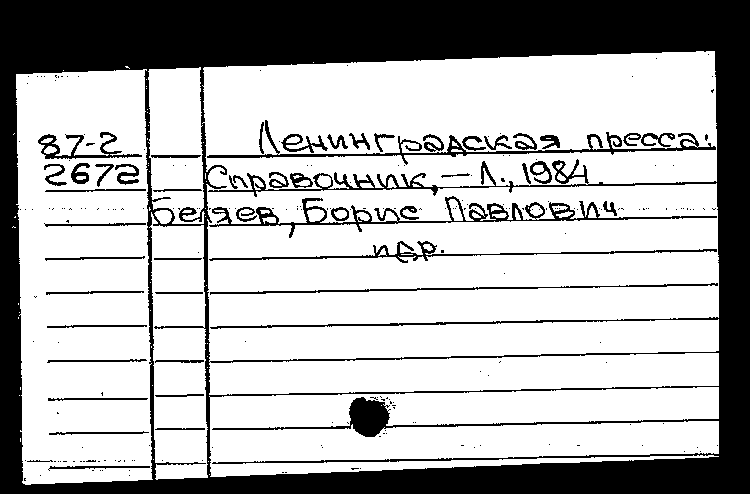 87-2 Ленинградская пресса:
2672 Справочник, – Л., 1984.
Беляев, Борис Павлович
и др.